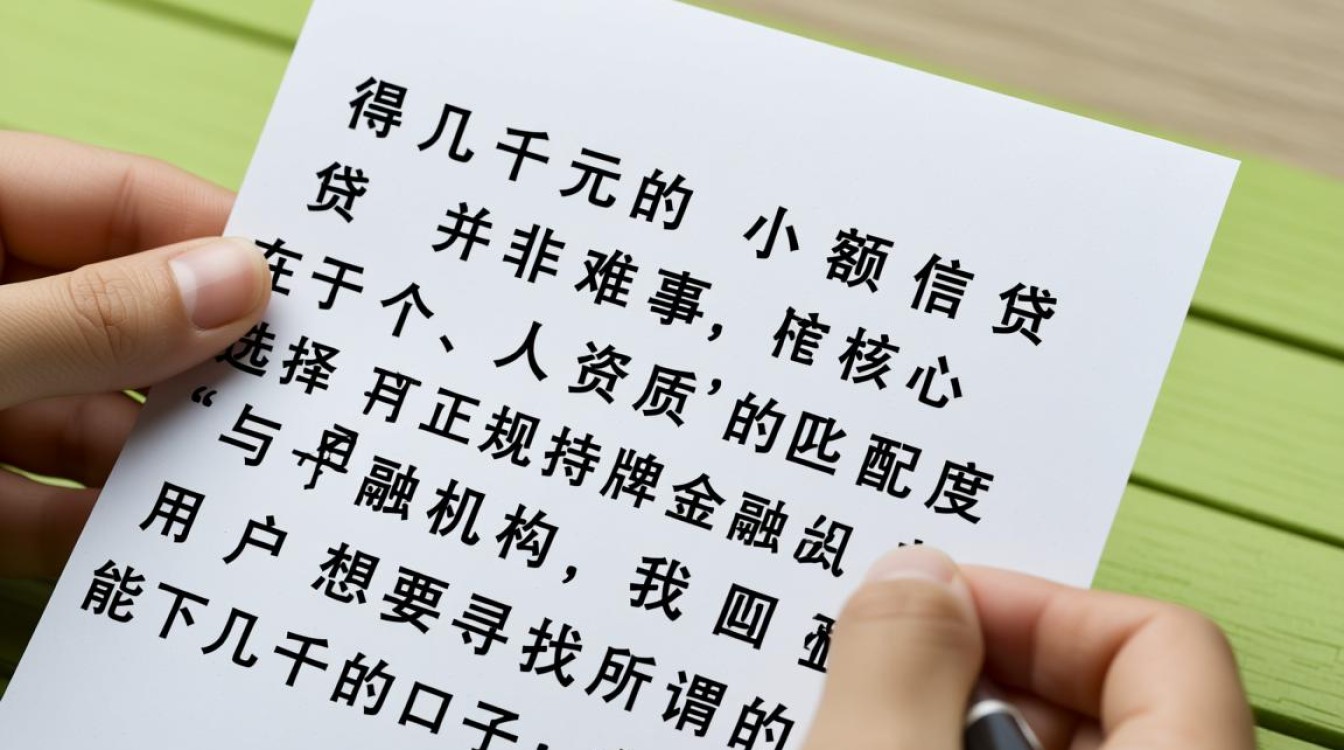 得几千元的 小额信贷
贷 并非难事，核心
在于个、人资质’的匹配度
选择 正规持牌金融
“与 融机构，我
用户想要寻找所谓的
能下几千的口子，